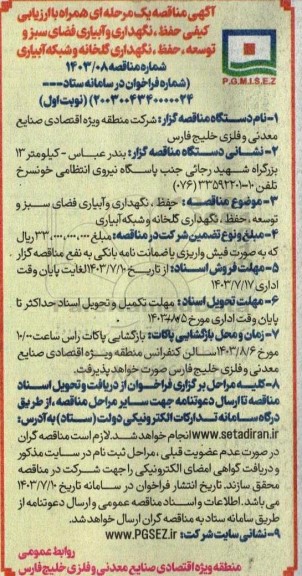 آگهی مناقصه یک مرحله ای همراه با ارزیابی
کیفی حفظ، نگهداری و آبیاری فضای سبز و
توسعه، حفظ، نگهداری گلخانه و شبکه آبیاری
شماره مناقصه ۱۴۰۳/۰۸
(شماره فراخوان در سامانه ستاد---
۲۰۰۳۰۰۴۳۴۰۰۰۰۰۲۴) (نوبت اول)
P.G.M.I.S.E.Z
۱-نام دستگاه مناقصه گزار: شرکت منطقه ویژه اقتصادی صنایع
معدنی و فلزی خلیج فارس
۲-نشانی دستگاه مناقصه گزار: بندر عباس - کیلومتر ۱۳
بزرگراه شهید رجائی جنب پاسگاه نیروی انتظامی خونسرخ
تلفن ۱۰-۳۳۵۹۲۲۰۱ (۰۷۶)
۳-موضوع مناقصه: حفظ، نگهداری و آبیاری فضای سبز و
توسعه، حفظ، نگهداری گلخانه و شبکه آبیاری
۴-مبلغ و نوع تضمین شرکت در مناقصه: مبلغ ۳۳،۰۰۰،۰۰۰،۰۰۰ ریال
که به صورت فیش واریزی یا ضمانت نامه بانکی به نفع مناقصه گزار
۵-مهلت فروش اسناد: از تاریخ ۱۴۰۳/۷/۱۰ لغایت پایان وقت
اداری ۱۴۰۳/۷/۱۷
۶-مهلت تحویل اسناد: مهلت تکمیل و تحویل اسناد حداکثر تا
پایان وقت اداری مورخ ۱۴۰۳/۸/۵
۷-زمان و محل بازگشایی پاکات: بازگشایی پاکات راس ساعت ۱۰/۰۰
مورخ ۱۴۰۳/۸/۶ سالن کنفرانس منطقه ویژه اقتصادی صنایع
معدنی و فلزی خلیج فارس صورت خواهد پذیرفت.
۸-کلیه مراحل برگزاری فراخوان از دریافت و تحویل اسناد
مناقصه تا ارسال دعوتنامه جهت سایر مراحل مناقصه، از طریق
درگاه سامانه تدارکات الکترونیکی دولت (ستاد) به آدرس:
www.setadiran.ir انجام خواهد شد. لازم است مناقصه گران
در صورت عدم عضویت قبلی، مراحل ثبت نام در سایت مذکور
و دریافت گواهی امضای الکترونیکی را جهت شرکت در مناقصه
محقق سازند. تاریخ انتشار فراخوان در سامانه تاریخ ۱۴۰۳/۷/۱۰
می باشد. اطلاعات و اسناد مناقصه عمومی و ارسال دعوتنامه از
طریق سامانه ستاد به مناقصه گران ارسال خواهد شد.
۹-نشانی سایت شرکت: www.PGSEZ.ir
روابط عمومی
منطقه ویژه اقتصادی صنایع معدنی و فلزی خلیج فارس